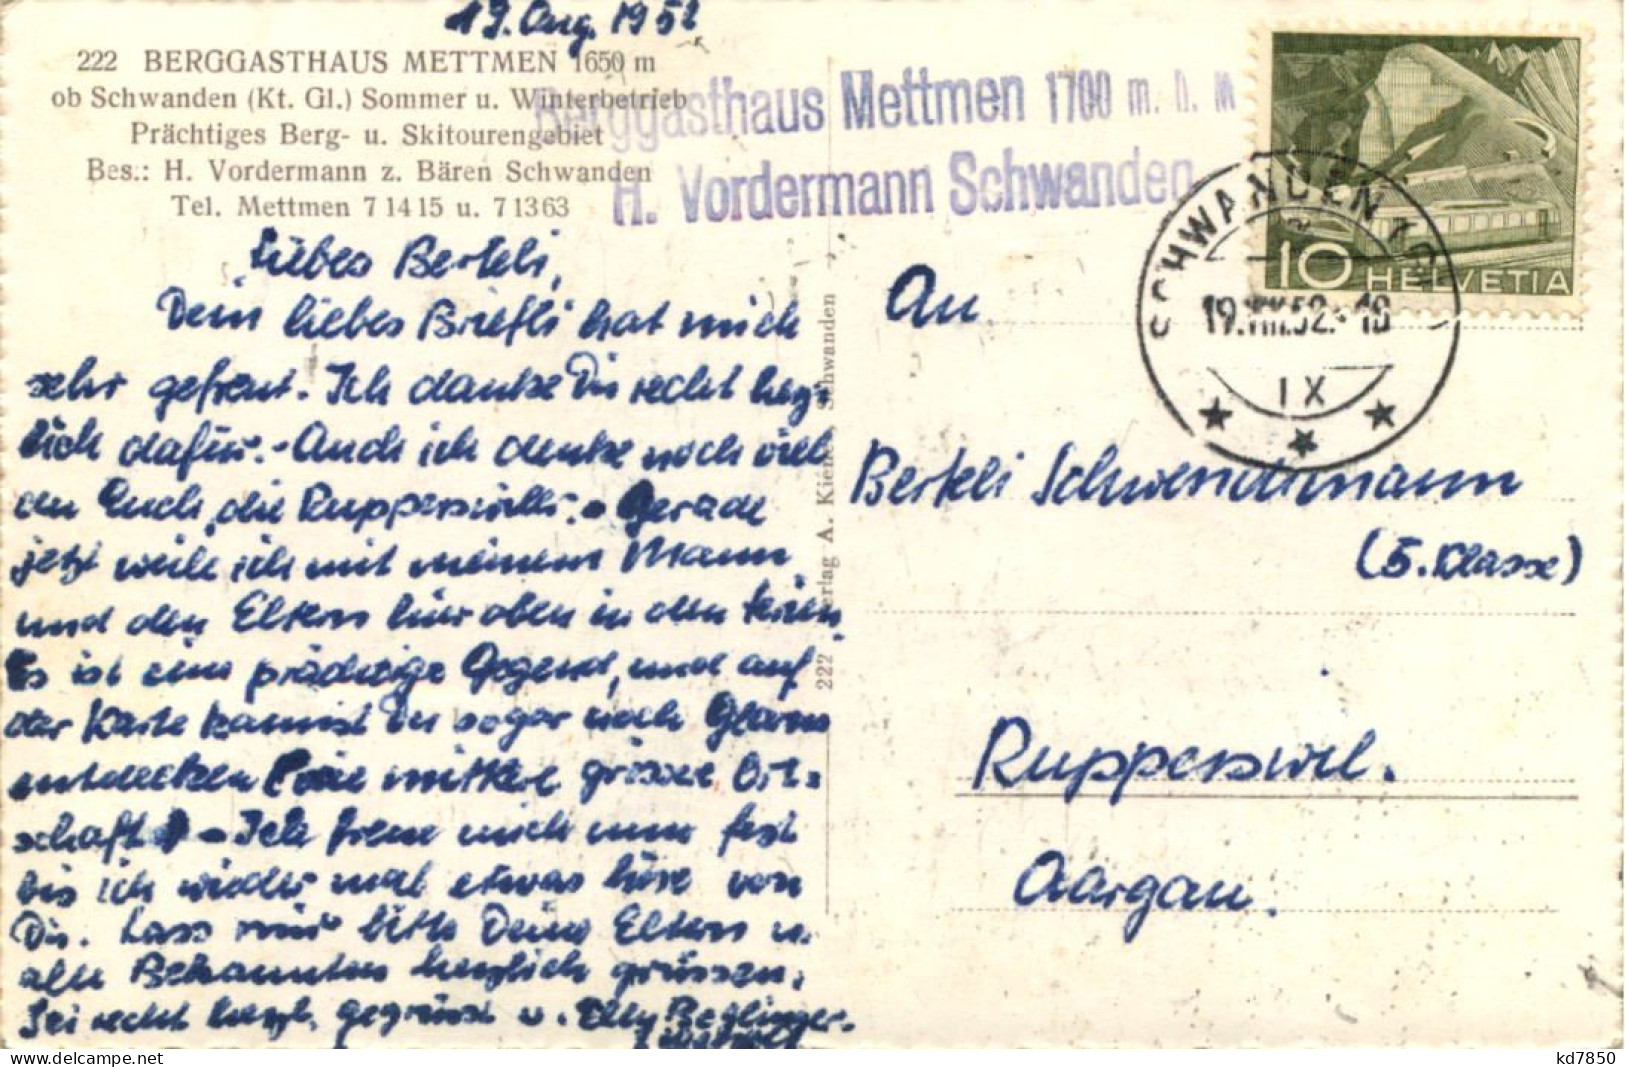 19. Aug. 1952
222 BERGGASTHAUS METTMEN 1650 m
ob Schwanden (Kt. Gl.) Sommer u. Winterbetrieb
Prächtiges Berg- u. Skitourengebiet
Bes.: H. Vordermann z. Bären Schwanden
Tel. Mettmen 7 14 15 u. 7 13 63
Berggasthaus Mettmen 1700 m. ü. M
H. Vordermann Schwanden
10 HELVETIA
SCHWANDEN
19.VIII.52.-18
IX
Liebes Berteli,
Dein liebes Briefli hat mich
sehr gefreut. Ich danke Dir recht herz-
lich dafür. - Auch ich denke noch viel
an Euch, die Rupperswiller. - Gerade
jetzt weile ich mit meinem Mann
und den Eltern hier oben in den Ferien.
Es ist eine prächtige Gegend, und auf
der Karte kannst Du sogar noch Glarus
entdecken (eine mittlere grössere Ort-
schaft) - Ich freue mich nun fest
bis ich wieder mal etwas höre von
Dir. Lass mir bitte Deine Eltern u.
alle Bekannten herzlich grüssen.
Sei recht herzl. gegrüsst v. Elly Beglinger-
222 Verlag A. Kiener, Schwanden
An
Berteli Schwendimann
(5. Klasse)
Rupperswil.
Aargau.
kd7850